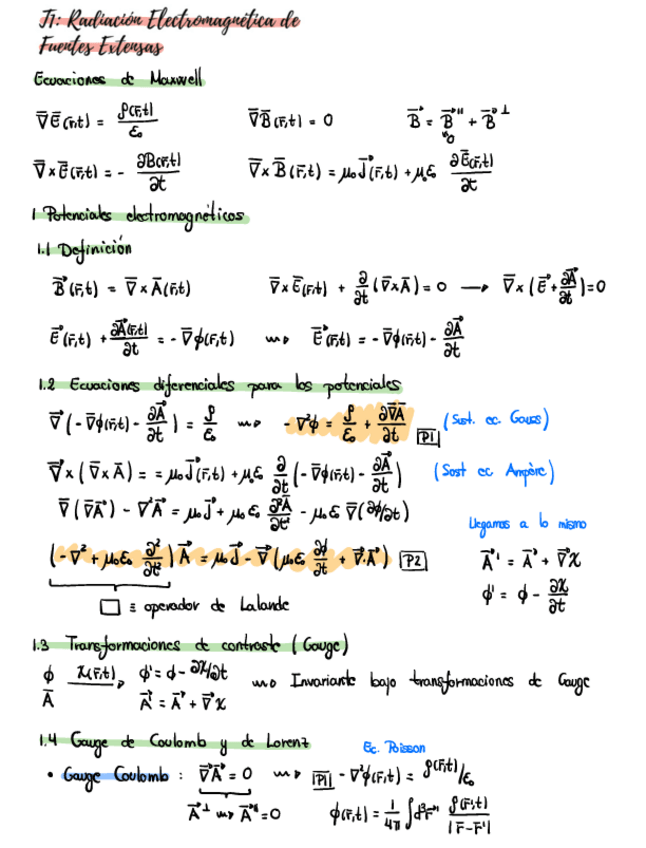 T1: Radiación Electromagnética de
Fuentes Extensas
Ecuaciones de Maxwell
∇⃗E⃗(r⃗,t) = ρ(r⃗,t)/ε₀    ∇⃗B⃗(r⃗,t) = 0    B⃗ = B⃗" + B⃗^⊥
0
∇⃗×E⃗(r⃗,t) = - ∂B(r⃗,t)/∂t    ∇⃗×B⃗(r⃗,t) = μ₀J⃗(r⃗,t) + μ₀ε₀ ∂E⃗(r⃗,t)/∂t
1 Potenciales electromagnéticos
1.1 Definición
B⃗(r⃗,t) = ∇⃗×A⃗(r⃗,t)    ∇⃗×E⃗(r⃗,t) + ∂/∂t(∇⃗×A⃗) = 0 → ∇⃗×(E⃗+∂A⃗/∂t)=0
E⃗(r⃗,t) + ∂A⃗(r⃗,t)/∂t = -∇⃗φ(r⃗,t) ⇝ E⃗(r⃗,t) = -∇⃗φ(r⃗,t) - ∂A⃗/∂t
1.2 Ecuaciones diferenciales para los potenciales
∇⃗(-∇⃗φ(r⃗,t) - ∂A⃗/∂t) = ρ/ε₀ ⇝ -∇²φ = ρ/ε₀ + ∂∇⃗A⃗/∂t P1 (Sust. ec. Gauss)
∇⃗×(∇⃗×A⃗) = = μ₀J⃗(r⃗,t) + μ₀ε₀ ∂/∂t(-∇⃗φ(r⃗,t) - ∂A⃗/∂t) (Sost ec Ampère)
∇⃗(∇⃗A⃗) - ∇²A⃗ = μ₀J⃗ + μ₀ε₀ ∂²A⃗/∂t² - μ₀ε ∇⃗(∂φ/∂t)
Llegamos a lo mismo
(-∇² + μ₀ε₀ ∂²/∂t²) A⃗ = μ₀J⃗ - ∇⃗(μ₀ε₀ ∂φ/∂t + ∇⃗·A⃗) P2
A⃗' = A⃗ + ∇⃗χ
φ' = φ - ∂χ/∂t
□ ≡ operador de Lalande
1.3 Transformaciones de contraste (Gauge)
φ χ(r⃗,t)→ φ' = φ - ∂χ/∂t ⇝ Invariante bajo transformaciones de Gauge
A⃗    A⃗' = A⃗ + ∇⃗χ
1.4 Gauge de Coulomb y de Lorenz
Ec. Poisson
• Gauge Coulomb : ∇⃗A⃗ = 0 ⇝ P1 -∇²φ(r⃗,t) = ρ(r⃗,t)/ε₀
A⃗^⊥ ⇝ A⃗" = 0    φ(r⃗,t) = 1/4π ∫d³r⃗' ρ(r⃗',t)/|r⃗-r⃗'|